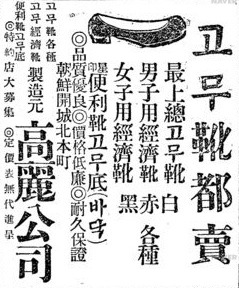 고무靴都賣
最上總고무靴 白
男子用經濟靴 赤 各種
女子用經濟靴 黑
星印 便利靴고무底(바닥)
◎品質優良◎價格低廉◎耐久保證
朝鮮開城北本町
고무靴各種
고무經濟靴 製造元 高麗公司
便利靴고무底
◎特約店大募集 ◎定價表無代進呈